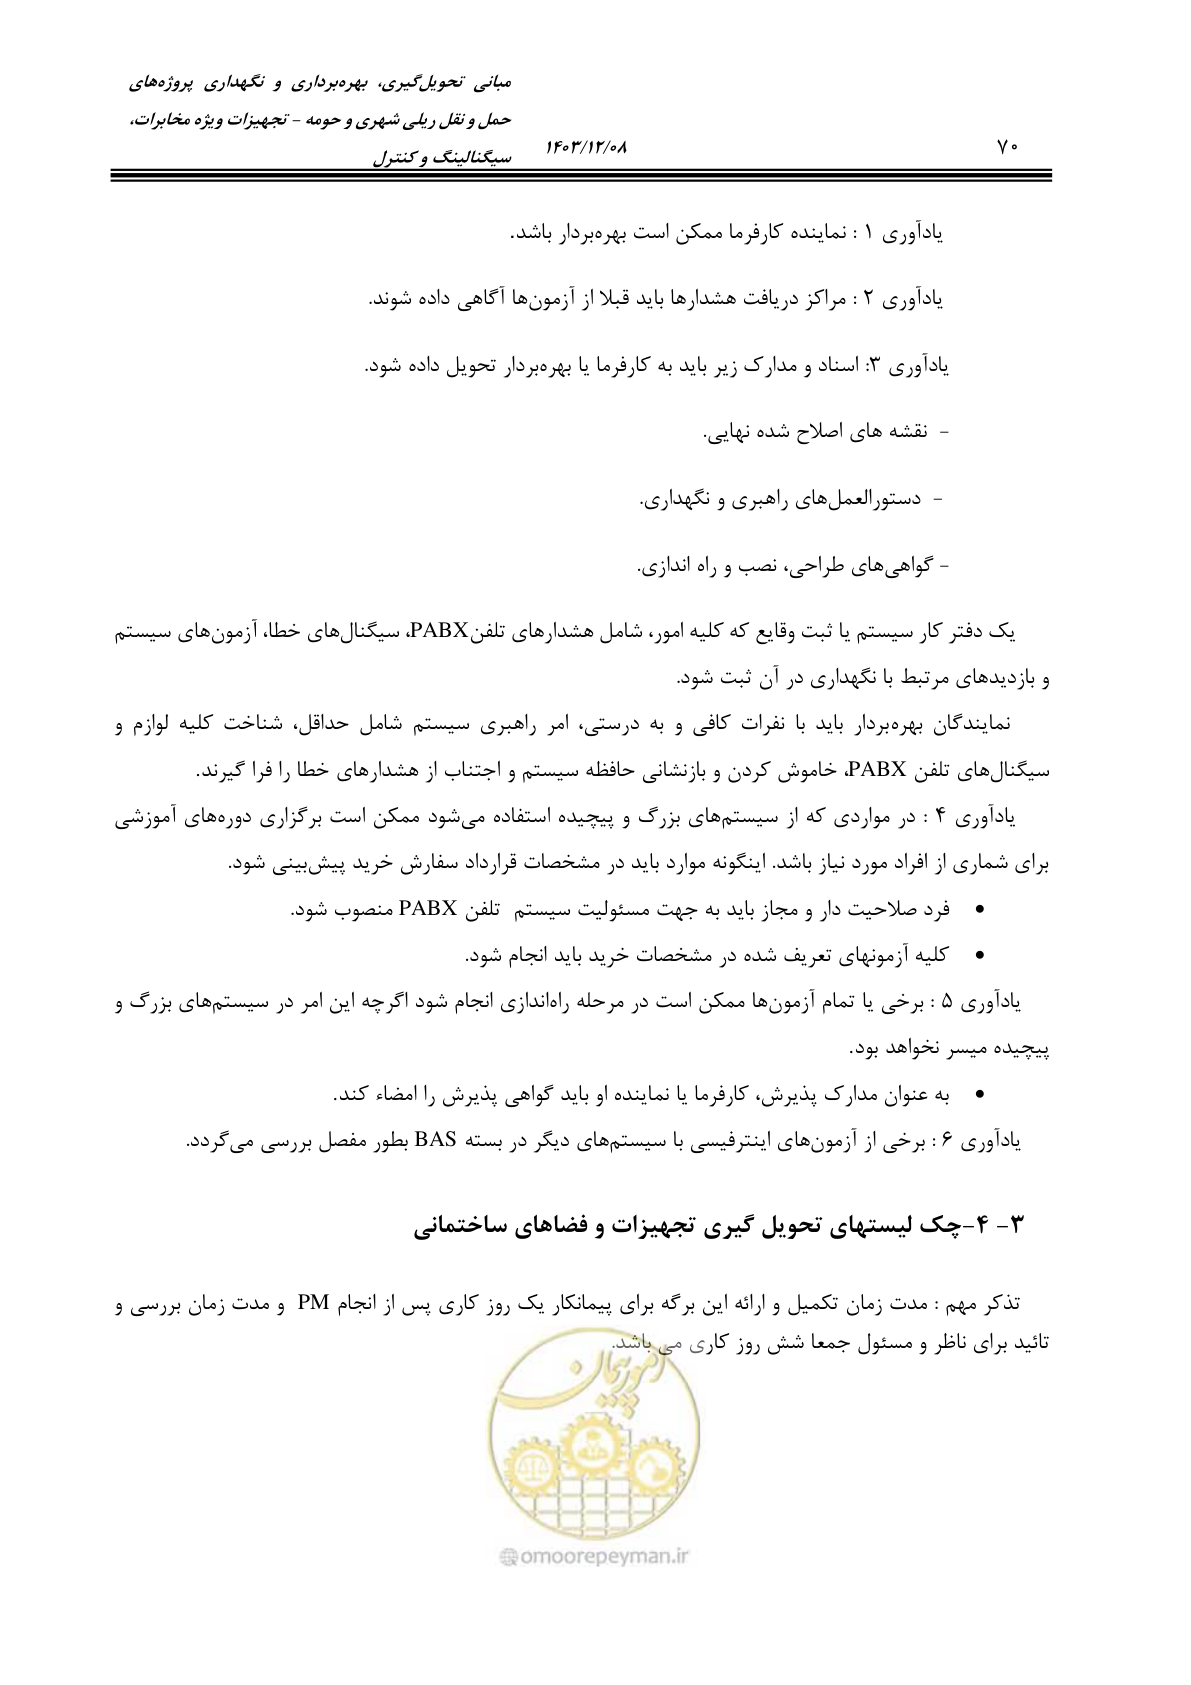 مبانی تحویل‌گیری، بهره‌برداری و نگهداری پروژه‌های
حمل و نقل ریلی شهری و حومه – تجهیزات ویژه مخابرات،
سیگنالینگ و کنترل
۱۴۰۳/۱۲/۰۸
۷۰
یادآوری ۱ : نماینده کارفرما ممکن است بهره‌بردار باشد.
یادآوری ۲ : مراکز دریافت هشدارها باید قبلا از آزمون‌ها آگاهی داده شوند.
یادآوری ۳: اسناد و مدارک زیر باید به کارفرما یا بهره‌بردار تحویل داده شود.
- نقشه های اصلاح شده نهایی.
- دستورالعمل‌های راهبری و نگهداری.
- گواهی‌های طراحی، نصب و راه اندازی.
یک دفتر کار سیستم یا ثبت وقایع که کلیه امور، شامل هشدارهای تلفنPABX، سیگنال‌های خطا، آزمون‌های سیستم
و بازدیدهای مرتبط با نگهداری در آن ثبت شود.
نمایندگان بهره‌بردار باید با نفرات کافی و به درستی، امر راهبری سیستم شامل حداقل، شناخت کلیه لوازم و
سیگنال‌های تلفن PABX، خاموش کردن و بازنشانی حافظه سیستم و اجتناب از هشدارهای خطا را فرا گیرند.
یادآوری ۴ : در مواردی که از سیستم‌های بزرگ و پیچیده استفاده می‌شود ممکن است برگزاری دوره‌های آموزشی
برای شماری از افراد مورد نیاز باشد. اینگونه موارد باید در مشخصات قرارداد سفارش خرید پیش‌بینی شود.
• فرد صلاحیت دار و مجاز باید به جهت مسئولیت سیستم تلفن PABX منصوب شود.
• کلیه آزمونهای تعریف شده در مشخصات خرید باید انجام شود.
یادآوری ۵ : برخی یا تمام آزمون‌ها ممکن است در مرحله راه‌اندازی انجام شود اگرچه این امر در سیستم‌های بزرگ و
پیچیده میسر نخواهد بود.
• به عنوان مدارک پذیرش، کارفرما یا نماینده او باید گواهی پذیرش را امضاء کند.
یادآوری ۶ : برخی از آزمون‌های اینترفیسی با سیستم‌های دیگر در بسته BAS بطور مفصل بررسی می‌گردد.
۳- ۴-چک لیستهای تحویل گیری تجهیزات و فضاهای ساختمانی
تذکر مهم : مدت زمان تکمیل و ارائه این برگه برای پیمانکار یک روز کاری پس از انجام PM و مدت زمان بررسی و
تائید برای ناظر و مسئول جمعا شش روز کاری می باشد.
امور پیمان
@omoorepeyman.ir